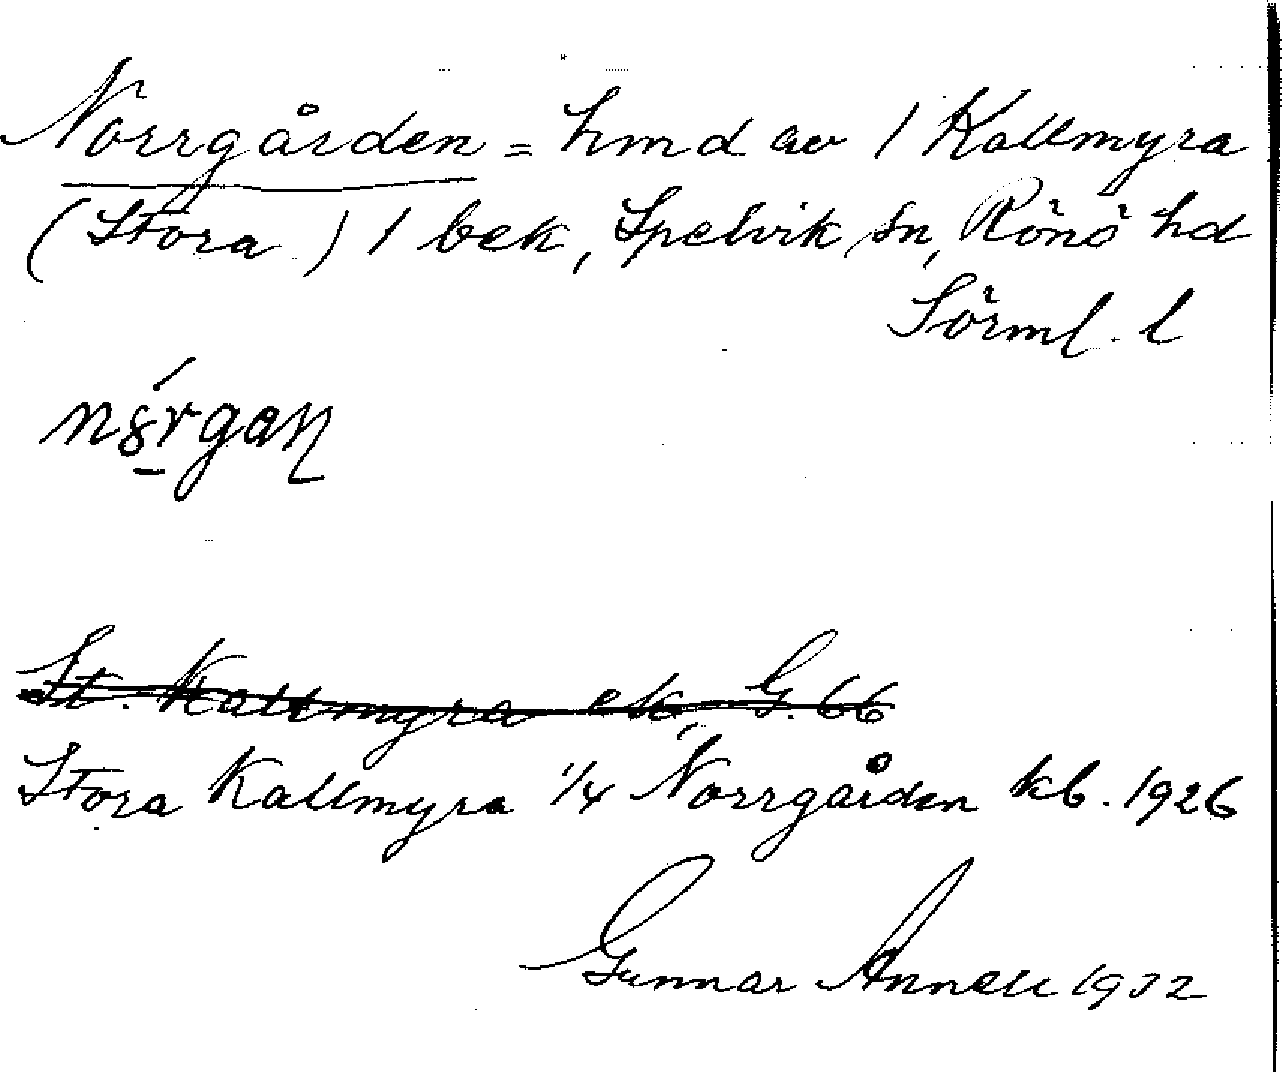 Norrgården = hmd av 1 Kallmyra
(Stora) 1 bek, Spelvik sn, Rönö hd
Sörml. l
St. Kallmyra ek, G. 66
Stora Kallmyra 1/4 Norrgården kb. 1926
Gunnar Annell 1932